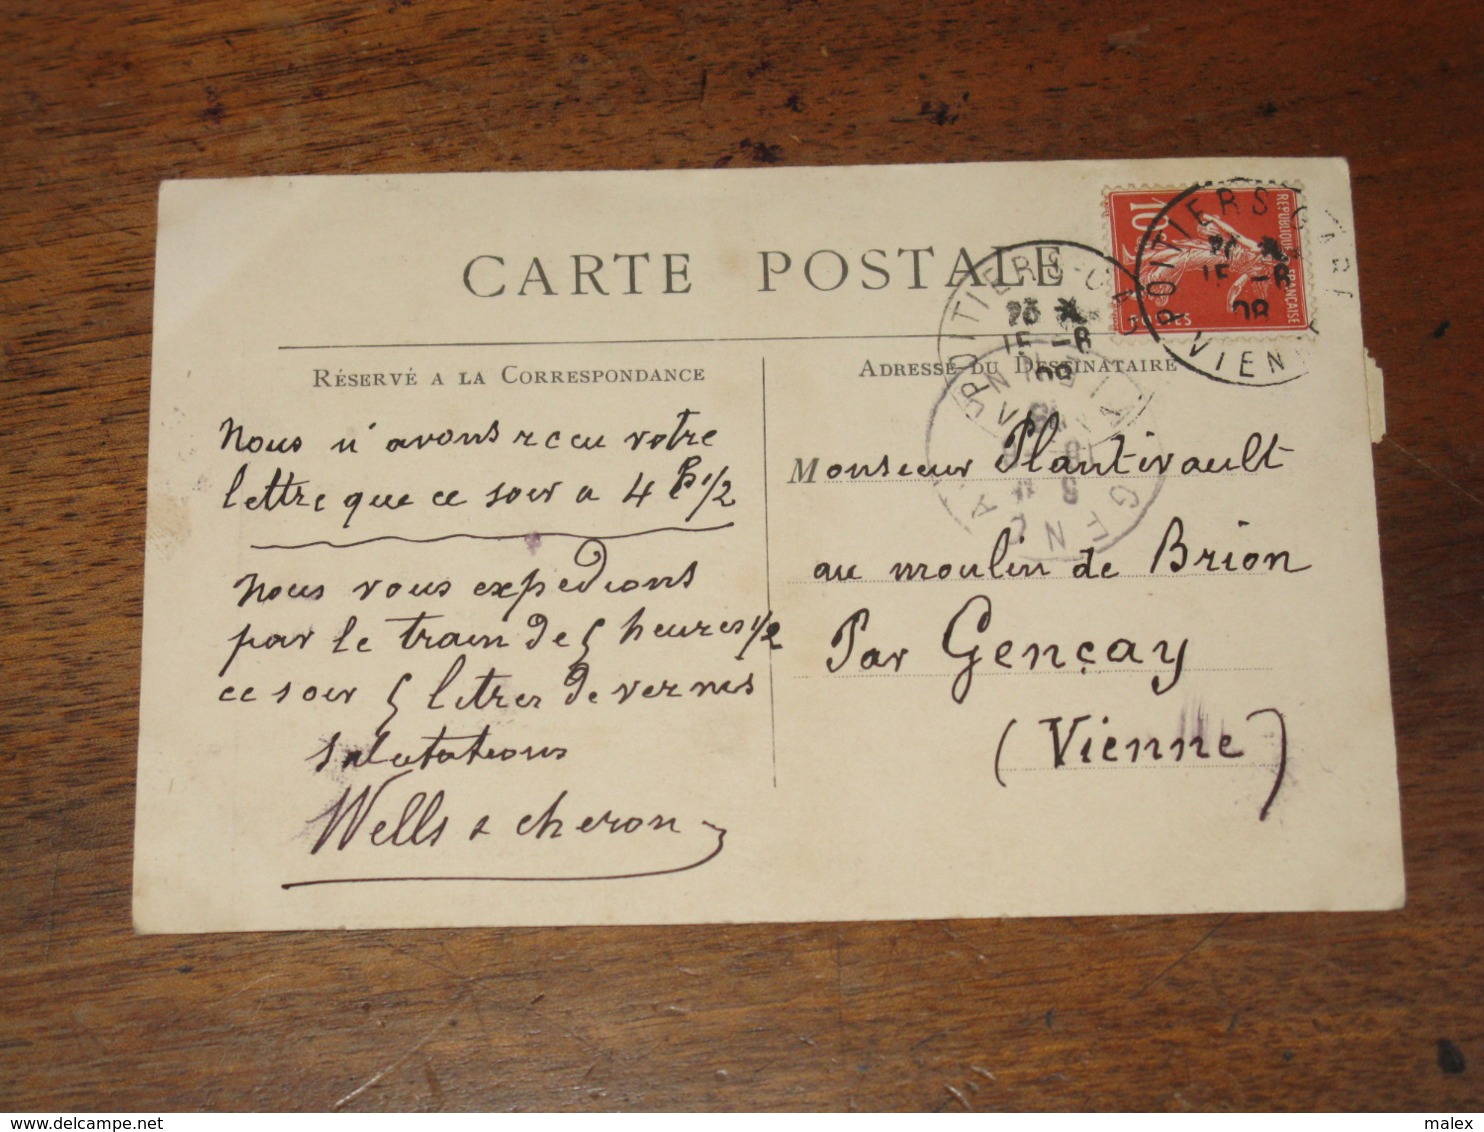 CARTE POSTALE
RÉSERVÉ A LA CORRESPONDANCE
Nous n'avons recu votre
lettre que ce soir a 4 h 1/2
Nous vous expedions
par le train de 5 heures 1/2
ce soir 5 litres de vernis
Salutations
Wells & cheron
ADRESSE DU DESTINATAIRE
Monsieur Plantivault
au moulin de Brion
Par Gençay
(Vienne)
10c
REPUBLIQUE FRANÇAISE
POSTES
POITIERS GARE
15 -8
08
VIENNE
POITIERS GA
15 -8
08
VIENNE
GENÇAY
delcampe.net
malex